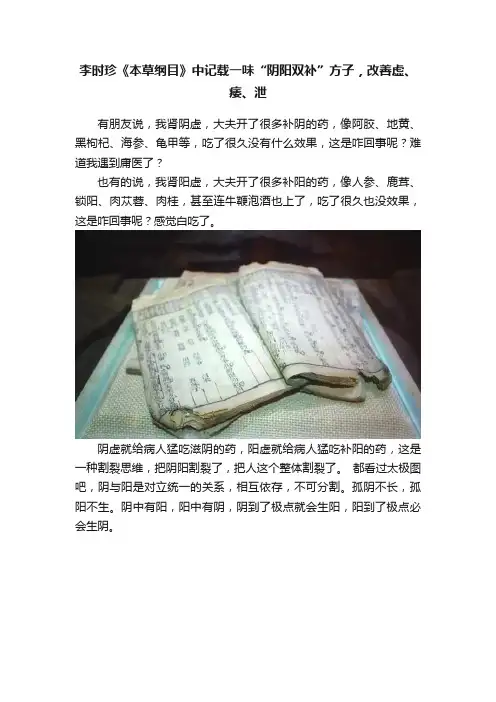 李时珍《本草纲目》中记载一味“阴阳双补”方子，改善虚、
痿、泄
有朋友说，我肾阴虚，大夫开了很多补阴的药，像阿胶、地黄、
黑枸杞、海参、龟甲等，吃了很久没有什么效果，这是咋回事呢？难
道我遇到庸医了？
也有的说，我肾阳虚，大夫开了很多补阳的药，像人参、鹿茸、
锁阳、肉苁蓉、肉桂，甚至连牛鞭泡酒也上了，吃了很久也没效果，
这是咋回事呢？感觉白吃了。
阴虚就给病人猛吃滋阴的药，阳虚就给病人猛吃补阳的药，这是
一种割裂思维，把阴阳割裂了，把人这个整体割裂了。 都看过太极图
吧，阴与阳是对立统一的关系，相互依存，不可分割。孤阴不长，孤
阳不生。阴中有阳，阳中有阴，阴到了极点就会生阳，阳到了极点必
会生阴。